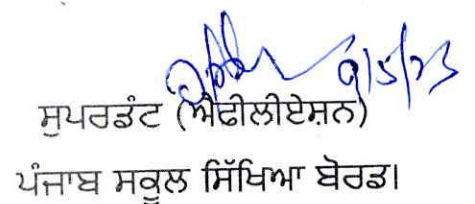 9/5/23
ਸੁਪਰਡੰਟ (ਐਫੀਲੀਏਸ਼ਨ)
ਪੰਜਾਬ ਸਕੂਲ ਸਿੱਖਿਆ ਬੋਰਡ।